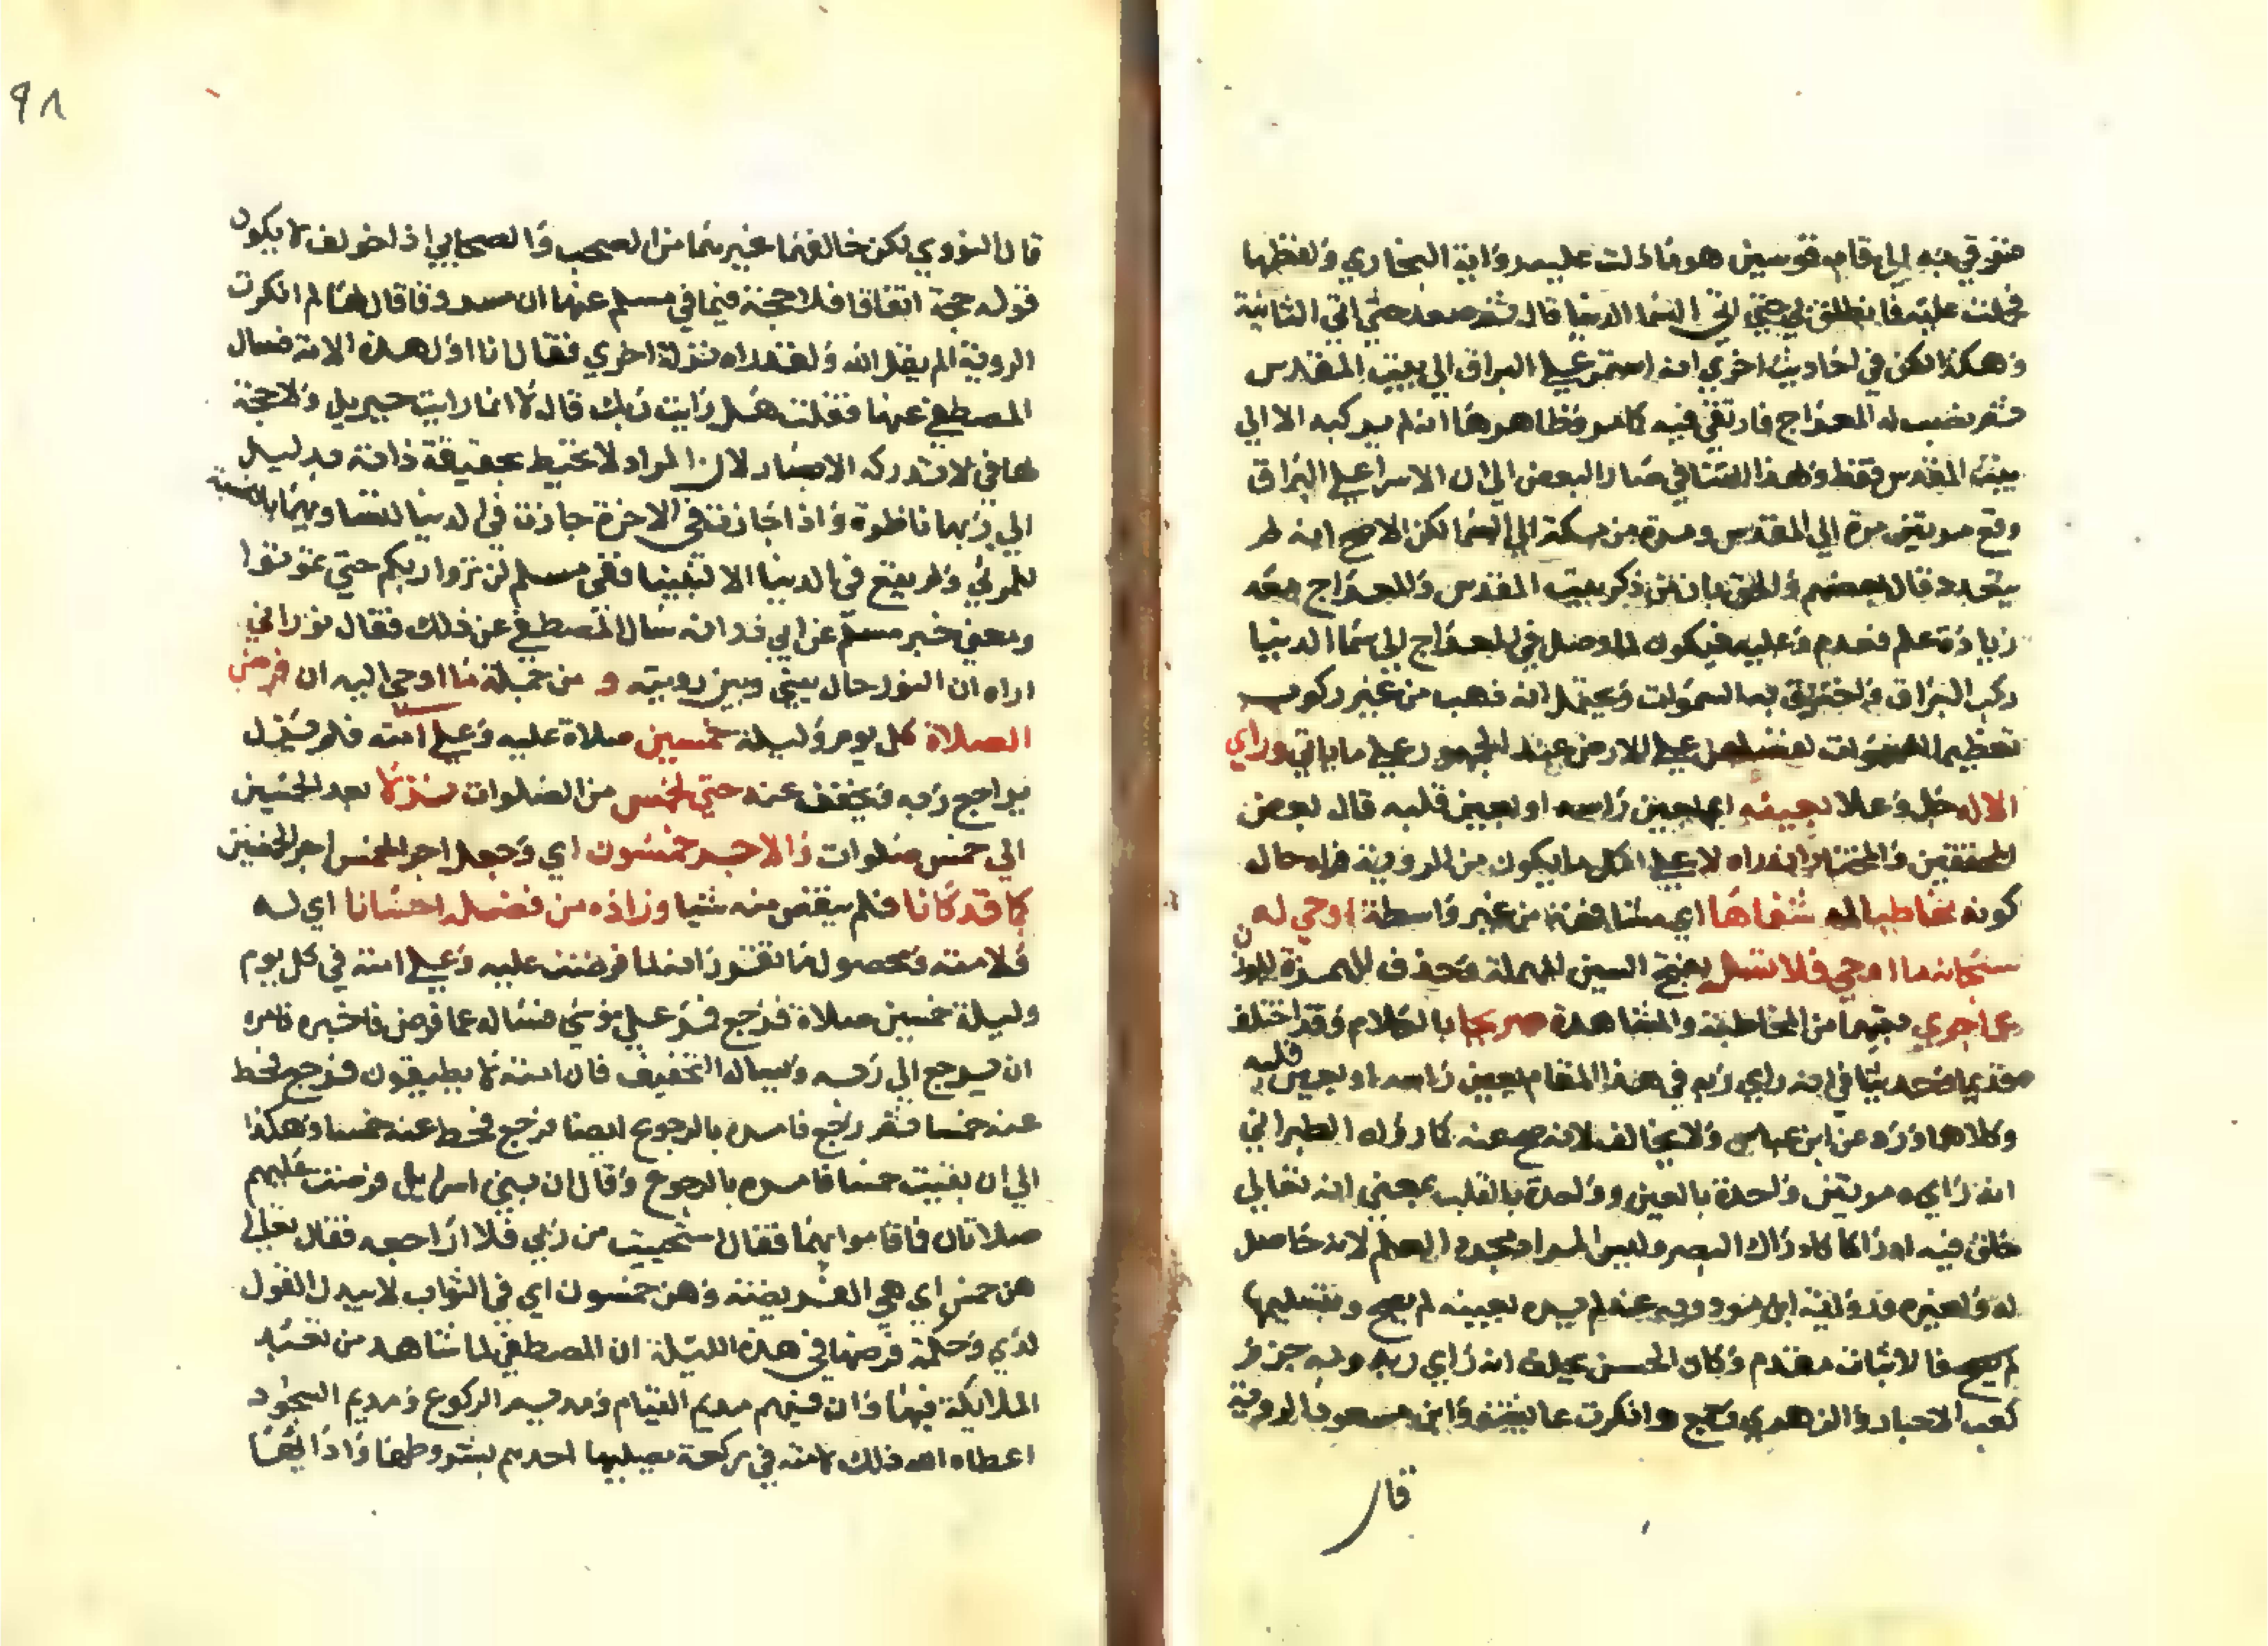 فترقي به الي قاب قوسين هو ما دلت عليه رواية البخاري ولفظها
فحملت عليه فانطلق بي حتي اتي السما الدنيا قال ثم صعد حتي اتي الثانية
وهكذا لكن في احاديث اخري انه استمر علي البراق الي بيت المقدس
ثم نصب له المعراج فارتقي فيه كما مر وظاهرها انه لم يركبه الا الي
بيت المقدس فقط ولهذا التنافي صار البعض الي ان الاسرا علي البراق
وقع مرتين مرة الي المقدس ومرة من مكة الي السما لكن الاصح انه لم
يتعدد قال بعضهم والحق بان من ذكر بيت المقدس والمعراج معه
زيادة علم فقدم وعليه فيكون لما وصل في المعراج الي سما الدنيا
ركب البراق واخترق به السموات ويحتمل انه ذهب من غير ركوب
تعظيما للسموات لفضلهن علي الارض عند الجمهور علي ما ياتي وراي
الاله جل وعلا بعينه اي بعين راسه او بعين قلبه قال بعض
المحققين والمختار انه راه لا علي اكمل ما يكون من الروية فراه حال
كونه مخاطبا له شفاها اي مشافهة من غير واسطة اوحي له
سبحانه ما اوحي فلا تسل بفتح السين المهملة وحذف الهمزة للوزن
عما جري بينهما من المخاطبة والمشاهدة صريحا بالكلام وقد اختلف
قديما وحديثا في انه راي ربه في هذا المقام بعين راسه او بعين قلبه
وكلاهما ورد عن ابن عباس ولا يخالف لانه صح عنه كما رواه الطبراني
انه راه مرتين واحدة بالعين وواحدة بالقلب بمعني انه تعالي
خلق فيه ادراكا كادراك البصر وليس المراد مجرد العلم لانه حاصل
له ولغيره ورواية ابن مردويه عنه لم يره بعينه لم يصح وبتسليمها
لم يصح فالاثبات مقدم وكان الحسن يحلف انه راي ربه وبه جزم
كعب الاحبار والزهري وجمع وانكرت عايشة وابن مسعود الروية
قال
٩٨
قال النووي لكن خالفهما غيرهما من الصحب والصحابي اذا خولف لا يكون
قوله حجة اتفاقا فلا حجة فيما في مسلم عنها ان مسروقا قال لها لم انكرت
الروية الم يقل الله ولقد راه نزلة اخري فقال انا اول هذه الامة سال
المصطفي عنها فقلت هل رايت ربك قال لا انما رايت جبريل ولا حجة
لها في لا تدركه الابصار لان المراد لا تحيط بحقيقة ذاته بدليل
الي ربها ناظرة واذا جازت في الاخرة جازت في الدنيا لتساويهما بالنسبة
للمرئي ولم يقع في الدنيا الا لنبينا ففي مسلم لن تروا ربكم حتي تموتوا
ومعني خبر مسلم عن ابي ذر انه سال المصطفي عن ذلك فقال نور اني
اراه ان النور حال بيني وبين رويته و من جملة ما اوحي اليه ان فرض
الصلاة كل يوم وليلة خمسين صلاة عليه وعلي امته فلم يزل
يراجع ربه فيخفف عنه حتي لخمس من الصلوات نزلا بعد الخمسين
الي خمس صلوات والاجر خمسون اي وجعل اجر الخمس اجر الخمسين
كما قد كانا فلم ينقص منه شيا وزاده من فضله احسانا اي له
ولامته ومحصول ما تقرر انه لما فرضت عليه وعلي امته في كل يوم
وليلة خمسين صلاة فرجع فمر علي موسي فساله عما فرض فاخبره فامره
ان يرجع الي ربه ويساله التخفيف فان امته لا يطيقون فرجع فحط
عنه خمسا ثم رجع فامره بالرجوع ايضا فرجع فحط عنه خمسا وهكذا
الي ان بقيت خمسا فامره بالرجوع وقال ان بني اسرايل فرضت عليهم
صلاتان فاقاموا بهما فقال استحييت من ربي فلا اراجعه فقال تعالي
هن خمس اي هي الفريضة وهن خمسون اي في الثواب لا يبدل القول
لدي وحكمة فرضها في هذه الليلة ان المصطفي لما شاهد من تعبد
الملائكة فيها وان منهم مديم القيام ومديم الركوع ومديم السجود
اعطاه الله ذلك لامته في ركعة يصليها احدهم بشروطها وادابها